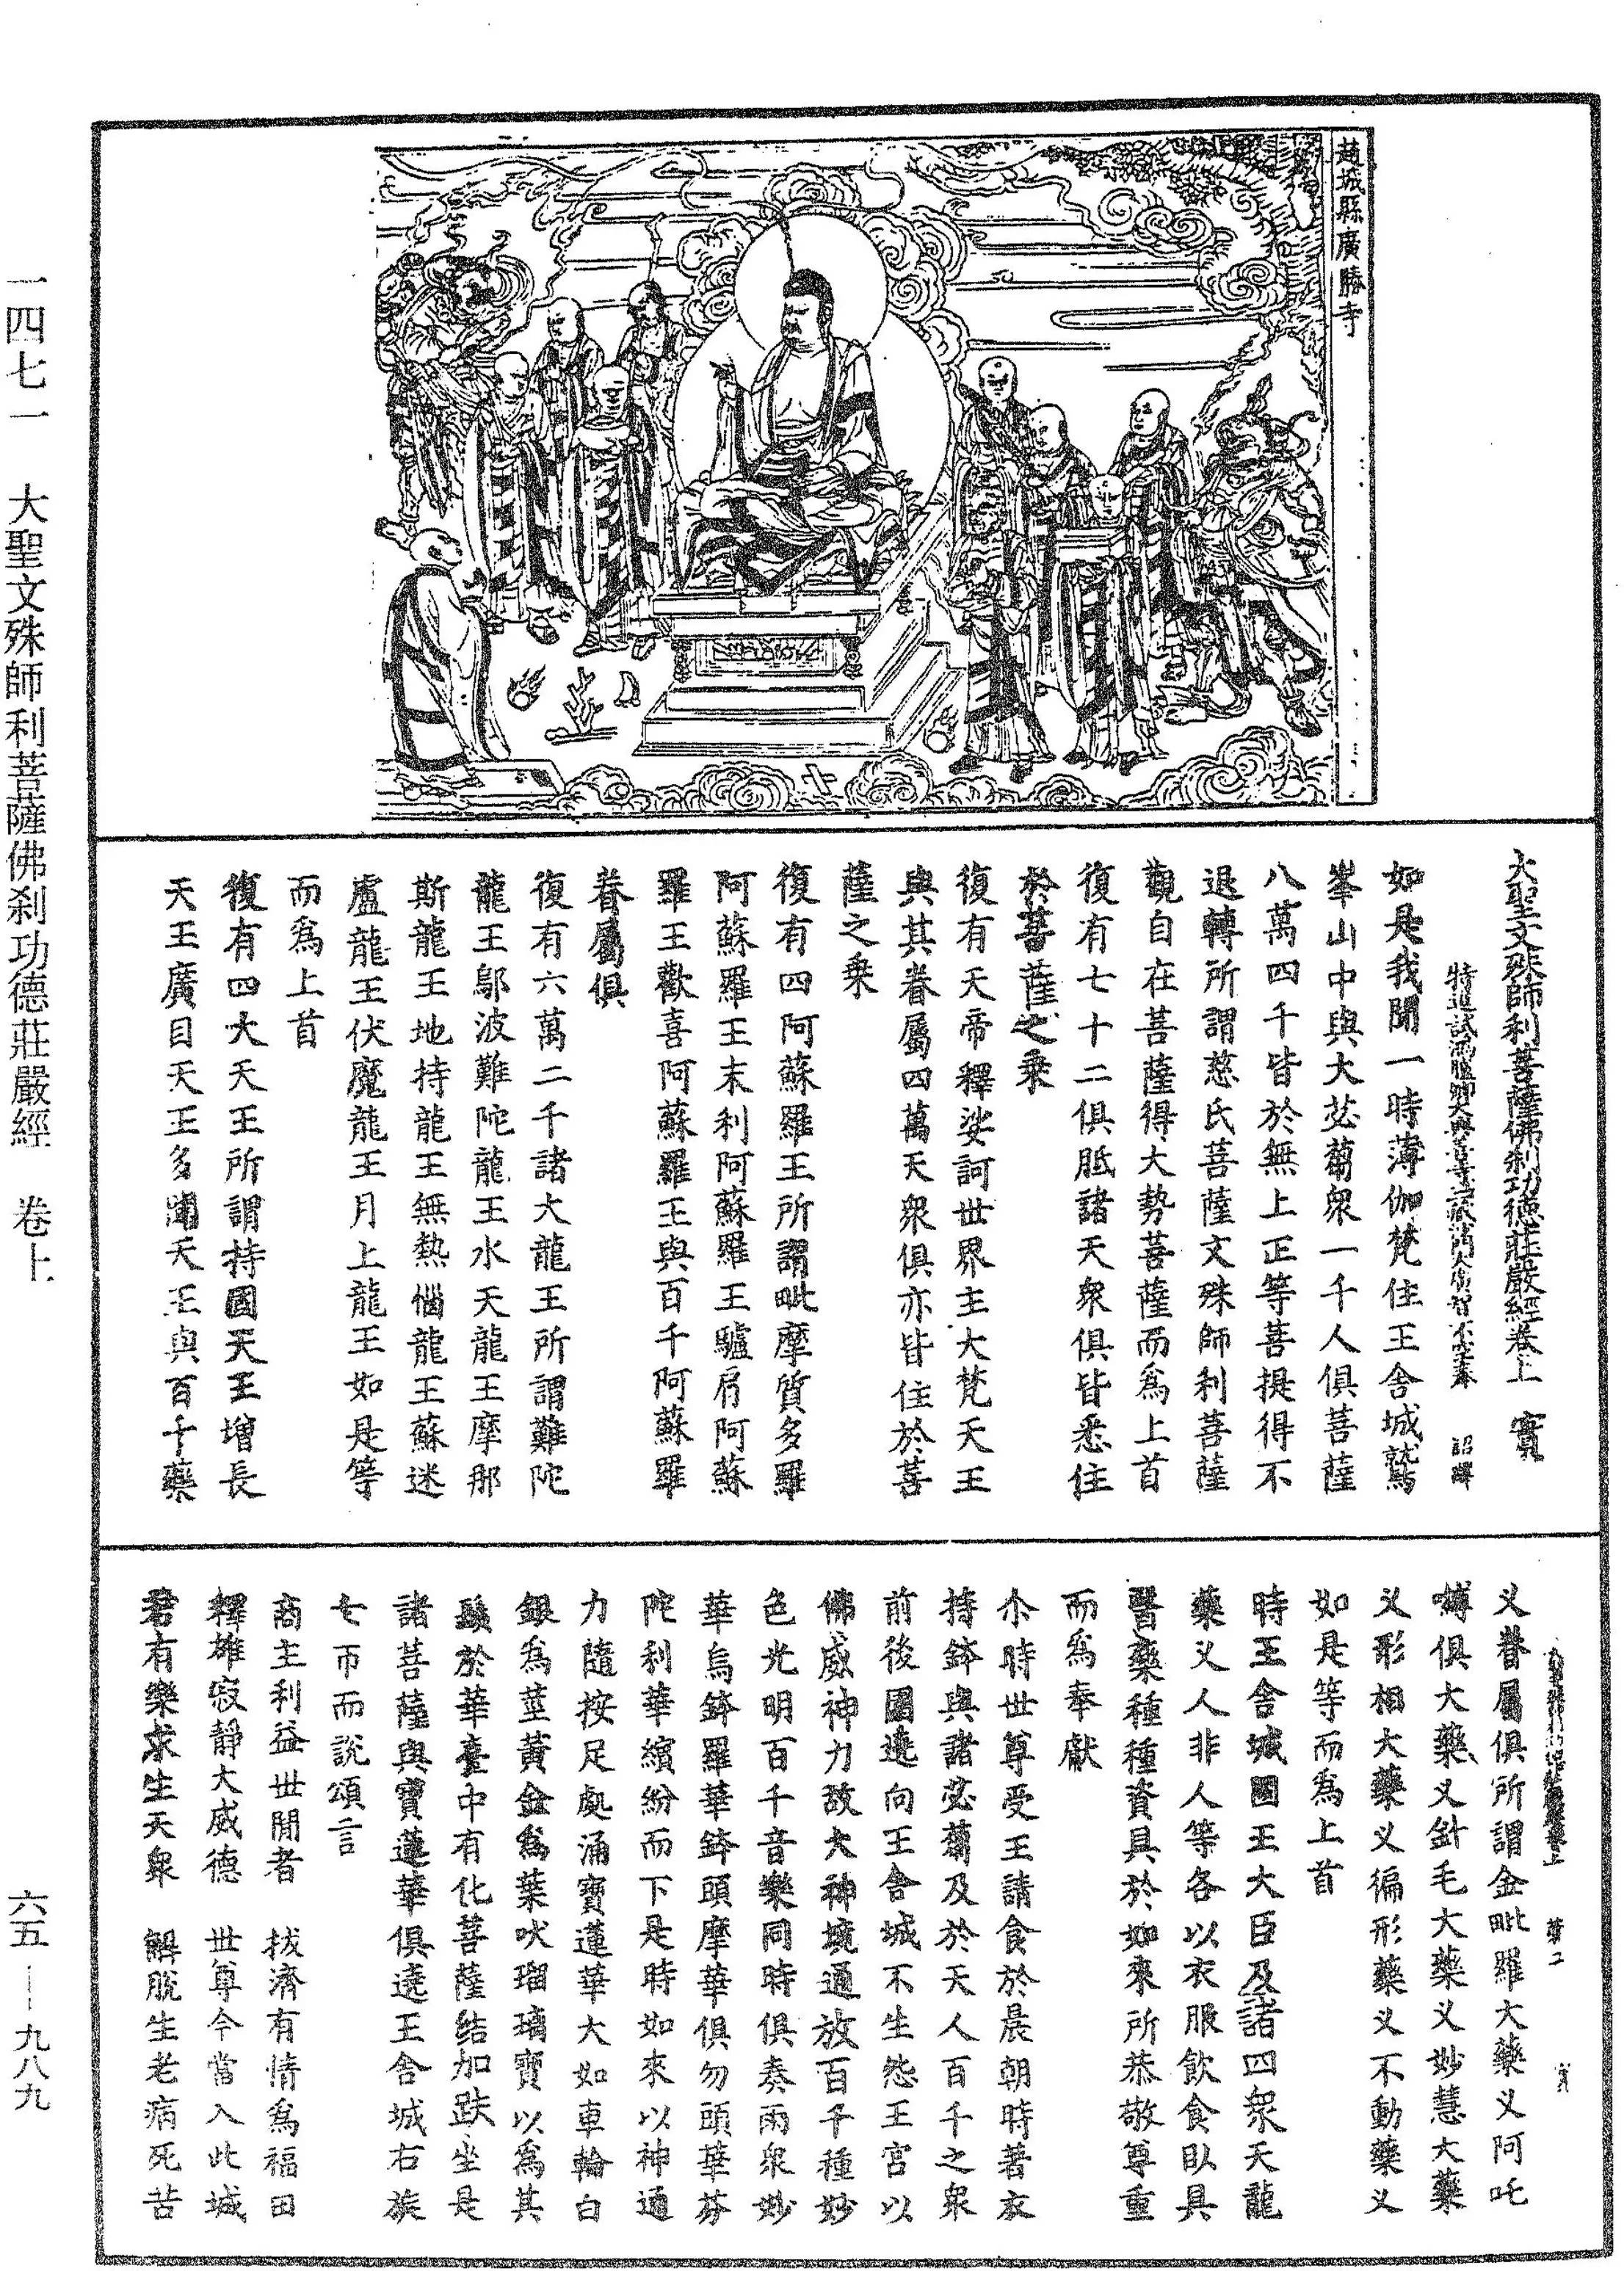 趙城縣廣勝寺
大聖文殊師利菩薩佛刹功德莊嚴經卷上 寶
特進試鴻臚卿大興善寺三藏沙門大廣智不空奉 詔譯
如是我聞一時薄伽梵住王舍城鷲
峯山中與大苾蒭衆一千人俱菩薩
八萬四千皆於無上正等菩提得不
退轉所謂慈氏菩薩文殊師利菩薩
觀自在菩薩得大勢菩薩而爲上首
復有七十二俱胝諸天衆俱皆悉住
於菩薩之乗
復有天帝釋娑訶世界主大梵天王
與其眷屬四萬天衆俱亦皆住於菩
薩之乗
復有四阿蘇羅王所謂毗摩質多羅
阿蘇羅王末利阿蘇羅王驢肩阿蘇
羅王歡喜阿蘇羅王與百千阿蘇羅
眷屬俱
復有六萬二千諸大龍王所謂難陀
龍王鄔波難陀龍王水天龍王摩那
斯龍王地持龍王無熱惱龍王蘇迷
盧龍王伏魔龍王月上龍王如是等
而爲上首
復有四大天王所謂持國天王增長
天王廣目天王多聞天王與百千藥
叉眷屬俱所謂金毗羅大藥叉阿吒
嚩俱大藥叉針毛大藥叉妙慧大藥
叉形相大藥叉徧形藥叉不動藥叉
如是等而爲上首
時王舍城國王大臣及諸四衆天龍
藥叉人非人等各以衣服飲食臥具
醫藥種種資具於如來所恭敬尊重
而爲奉獻
尒時世尊受王請食於晨朝時著衣
持鉢與諸苾蒭及於天人百千之衆
前後圍遶向王舍城不生怨王宮以
佛威神力故大神境通放百千種妙
色光明百千音樂同時俱奏雨衆妙
華烏鉢羅華鉢頭摩華俱勿頭華芬
陀利華繽紛而下是時如來以神通
力隨按足處涌寶蓮華大如車輪白
銀爲莖黃金爲葉吠瑠璃寶以爲其
鬚於華臺中有化菩薩結加趺坐是
諸菩薩與寶蓮華俱遶王舍城右旋
七帀而說頌言
商主利益世間者 拔濟有情爲福田
釋雄寂靜大威德 世尊今當入此城
若有樂求生天衆 解脫生老病死苦
一四七一 大聖文殊師利菩薩佛刹功德莊嚴經 卷上
六五—九八九